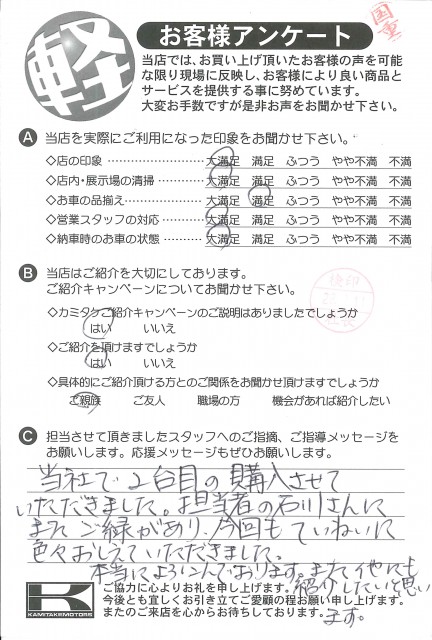 国
軽
お客様アンケート
当店では、お買い上げ頂いたお客様の声を可能
な限り現場に反映し、お客様により良い商品と
サービスを提供する事に努めています。
大変お手数ですが是非お声をお聞かせ下さい。
A 当店を実際にご利用になった印象をお聞かせ下さい。
◇店の印象 ………………… 大満足 満足 ふつう やや不満 不満
◇店内・展示場の清掃 ………… 大満足 満足 ふつう やや不満 不満
◇お車の品揃え ……………… 大満足 満足 ふつう やや不満 不満
◇営業スタッフの対応 ………… 大満足 満足 ふつう やや不満 不満
◇納車時のお車の状態 ………… 大満足 満足 ふつう やや不満 不満
B 当店はご紹介を大切にしております。
ご紹介キャンペーンについてお聞かせ下さい。
検印
◇カミタケご紹介キャンペーンのご説明はありましたでしょうか
はい いいえ
◇ご紹介を頂けますでしょうか
はい いいえ
◇具体的にご紹介頂ける方とのご関係をお聞かせ頂けますでしょうか
ご親族 ご友人 職場の方 機会があれば紹介したい
C 担当させて頂きましたスタッフへのご指摘、ご指導メッセージを
お願いします。応援メッセージもぜひお願いします。
当社で2台目の購入させて
いただきました。担当者の石川さんに
またご縁があり、今回もていねいに
色々おしえていただきました。
本当によろこんでおります。また他にも
紹介したいと思い
ます。
K
KAMITAKE MOTORS
ご協力に心よりお礼を申し上げます。
今後とも宜しくお引き立てご愛顧の程お願い申し上げます。
またのご来店を心からお待ちしております。